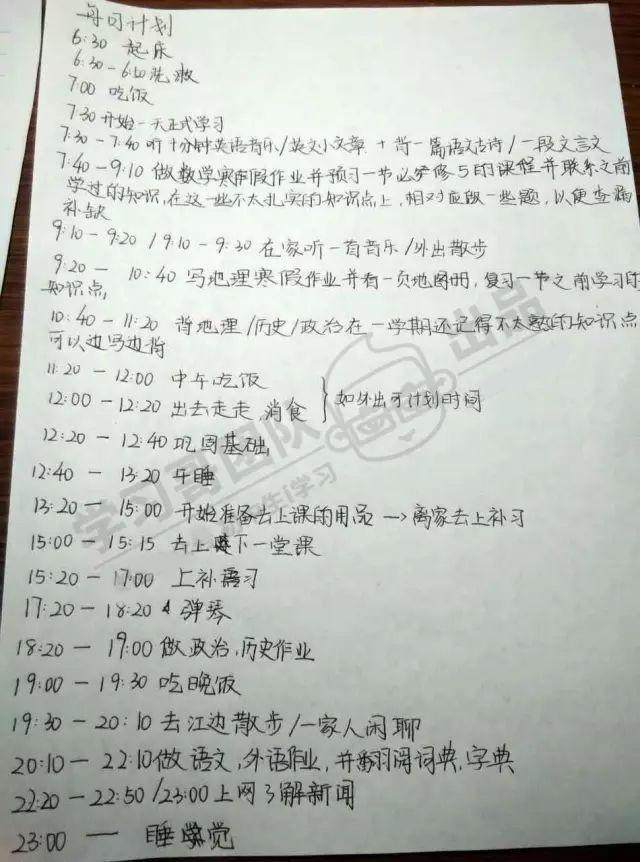 每日计划
6:30 起床
6:30-6:50洗漱
7:00 吃饭
7:30 开始一天正式学习
7:30-7:40 听十分钟英语音乐/英文小文章 + 背一篇语文古诗/一段文言文
7:40-9:10 做数学寒假作业并预习一节必修5的课程并联系之前
学过的知识,在这一些不太扎实的知识点上,相对应做一些题,以便查漏
补缺
9:10-9:20 / 9:10-9:30 在家听一首音乐/外出散步
9:20- 10:40 写地理寒假作业并看一页地图册,复习一节之前学习的
知识点,
10:40-11:20 背地理/历史/政治在一学期还记得不太熟的知识点
可以边写边背
11:20-12:00 中午吃饭
12:00-12:20 出去走走,消食 } 如外出可计划时间
12:20-12:40 巩固基础
12:40-13:20 午睡
13:20-15:00 开始准备去上课的用品 → 离家去上补习
15:00-15:15 去上下一堂课
15:20-17:00 上补习
17:20-18:20 弹琴
18:20-19:00 做政治,历史作业
19:00-19:30 吃晚饭
19:30-20:10 去江边散步/一家人闲聊
20:10-22:10 做语文,外语作业,并翻阅词典,字典
22:20-22:50/23:00上网了解新闻
23:00 — 睡觉
学习哥团队 出品
学习